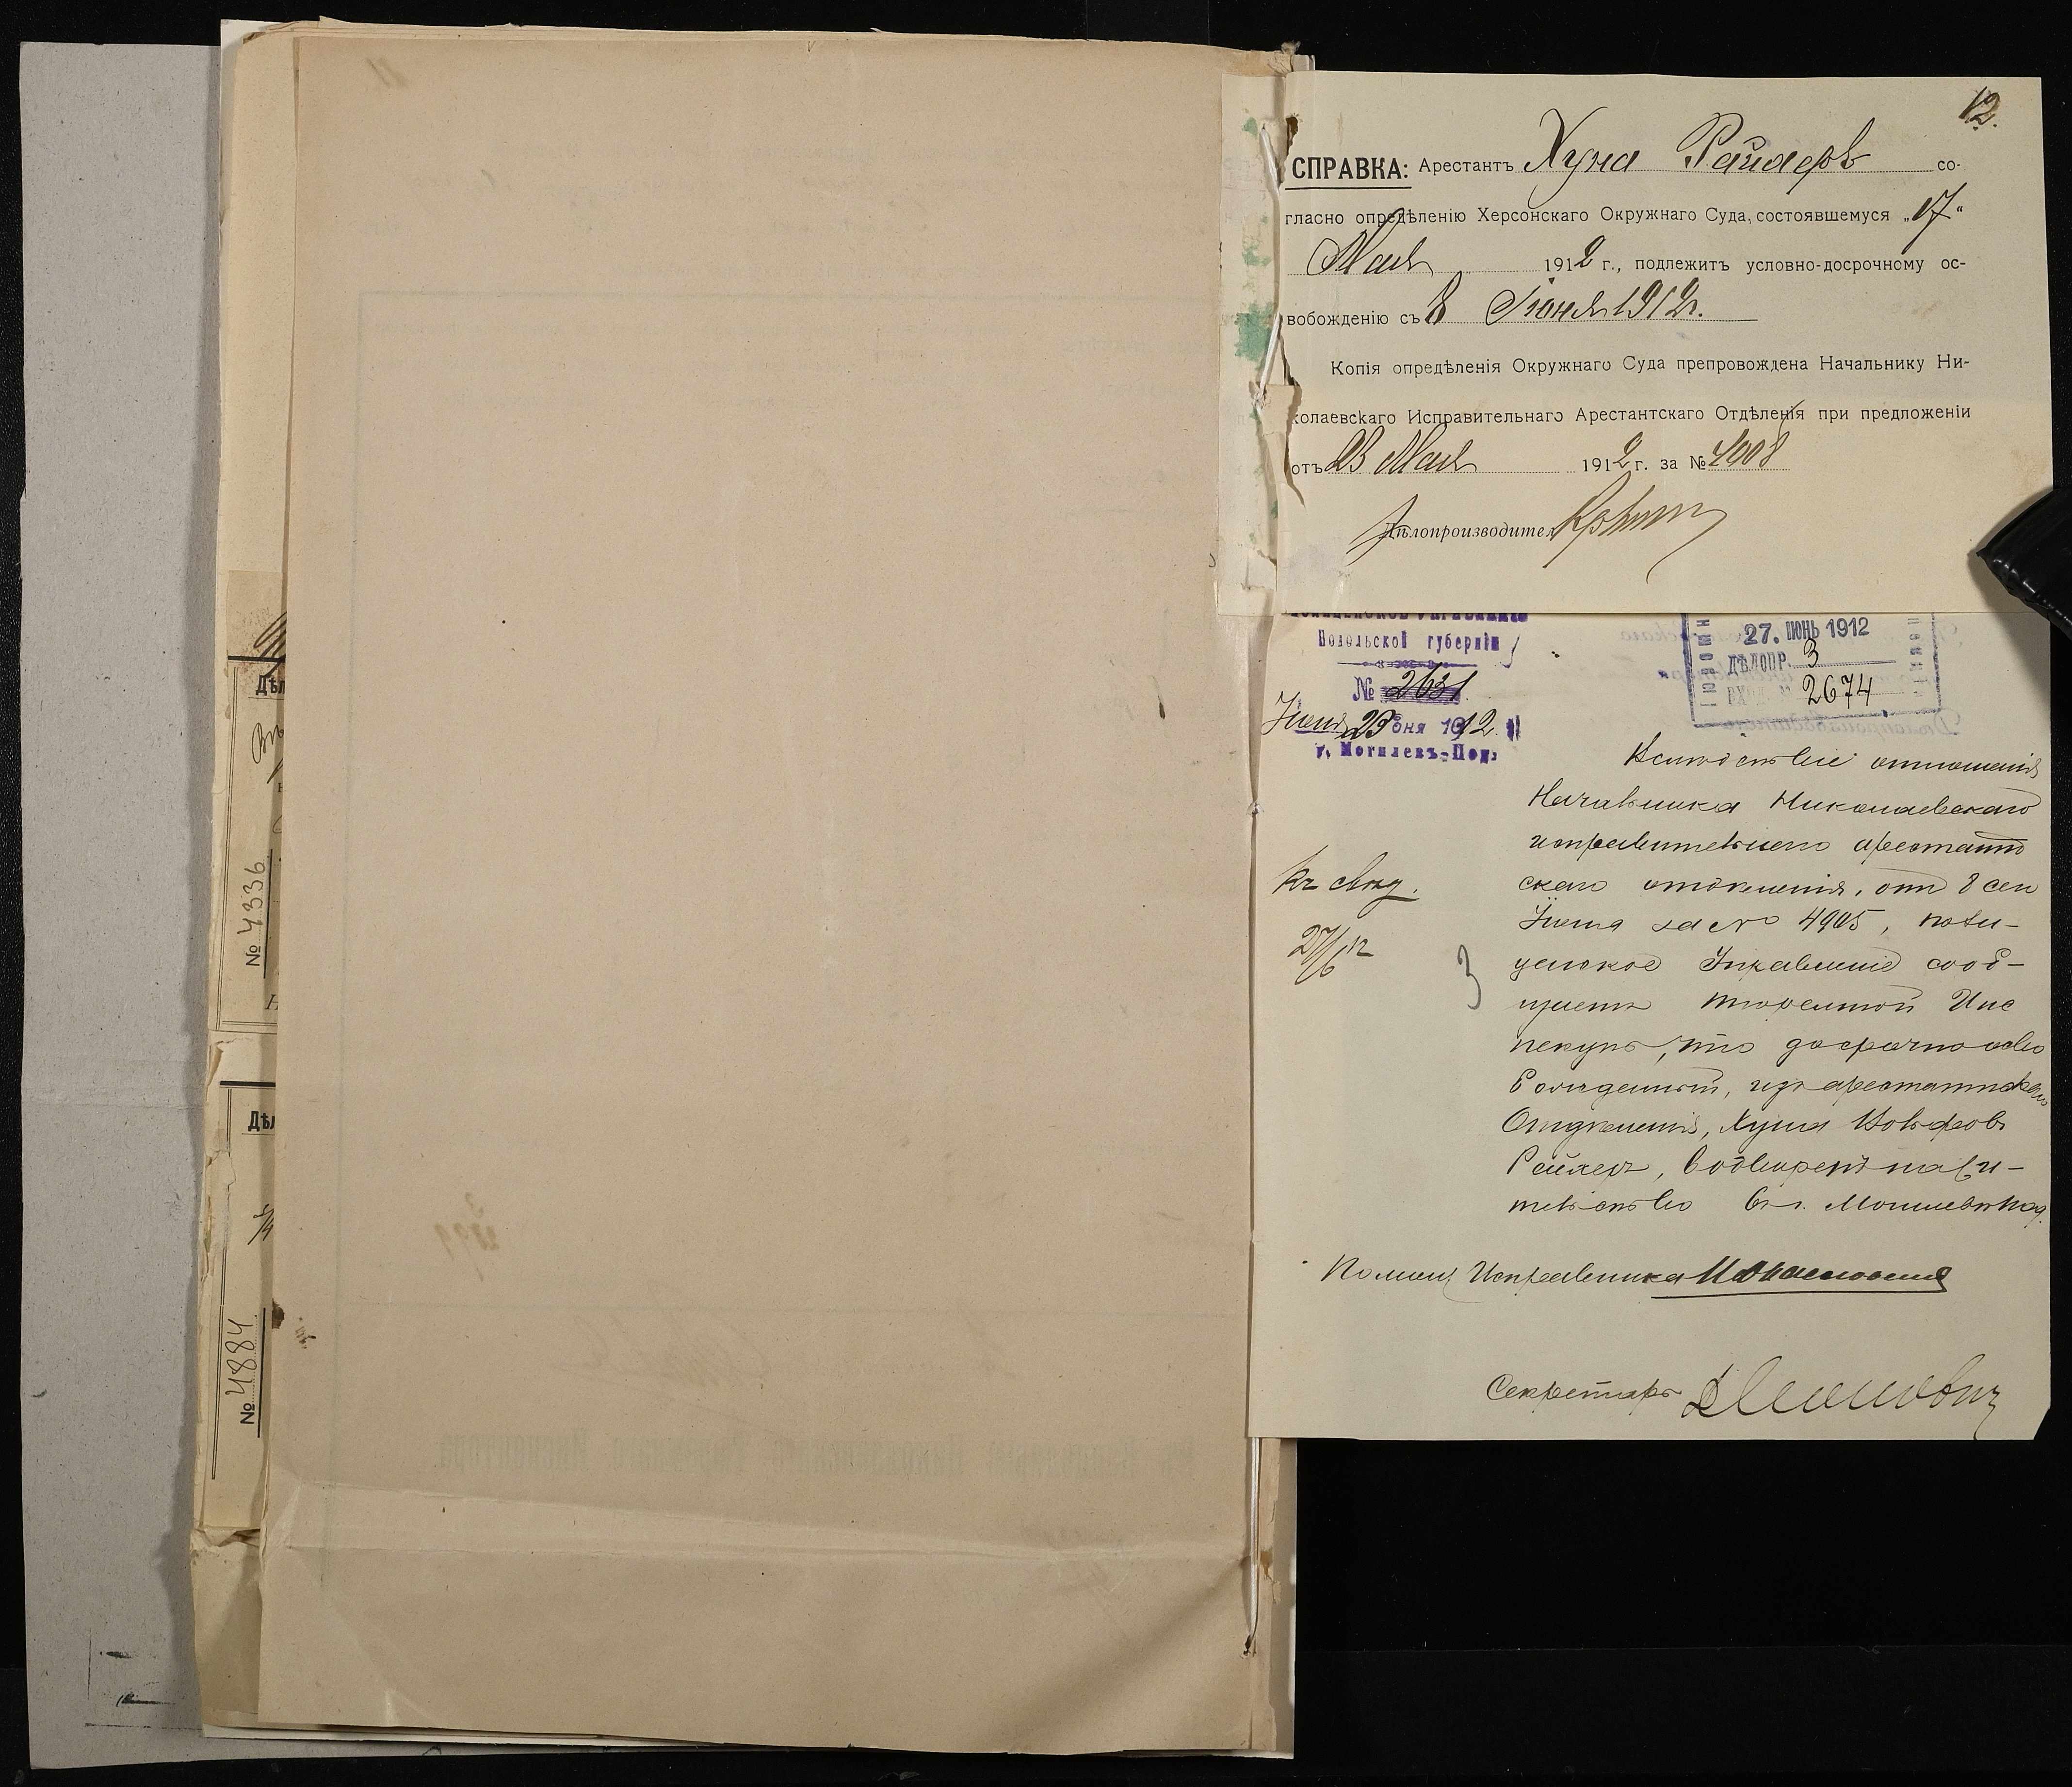 12.
СПРАВКА: Арестантъ Хуна Райдеръ со-
гласно опредѣленію Херсонскаго Окружнаго Суда, состоявшемуся „17“
Мая 1912 г., подлежитъ условно-досрочному ос-
вобожденію съ 8 Іюня 1912 г.
Копія опредѣленія Окружнаго Суда препровождена Начальнику Ни-
колаевскаго Исправительнаго Арестантскаго Отдѣленія при предложеніи
отъ 23 Мая 1912 г. за № 4008
Дѣлопроизводитель
Подольской губерніи
№ 2631
Іюня 23 дня 1912 г.
г. Могилевъ-Под.
27. ІЮНЬ 1912
ДѢЛОПР. 3
ВХОД. № 2674
Вслѣдствіе отношенія
Начальника Николаевскаго
исправительнаго арестант
скаго отдѣленія, отъ 8 сего
Іюня за № 4905, поли-
цейское Управленіе сооб-
щаетъ тюремной Инс
пекціи, что досрочно осво
божденный, изъ арестантскаго
Отдѣленія, Хуна
водворенъ на жи-
тельство въ г. Могилевъ Под.
Къ свѣд.
27/6 12
3
Помощ. Исправника
Секретарь
№ 4336
№ 4884
Дѣл
Дѣл